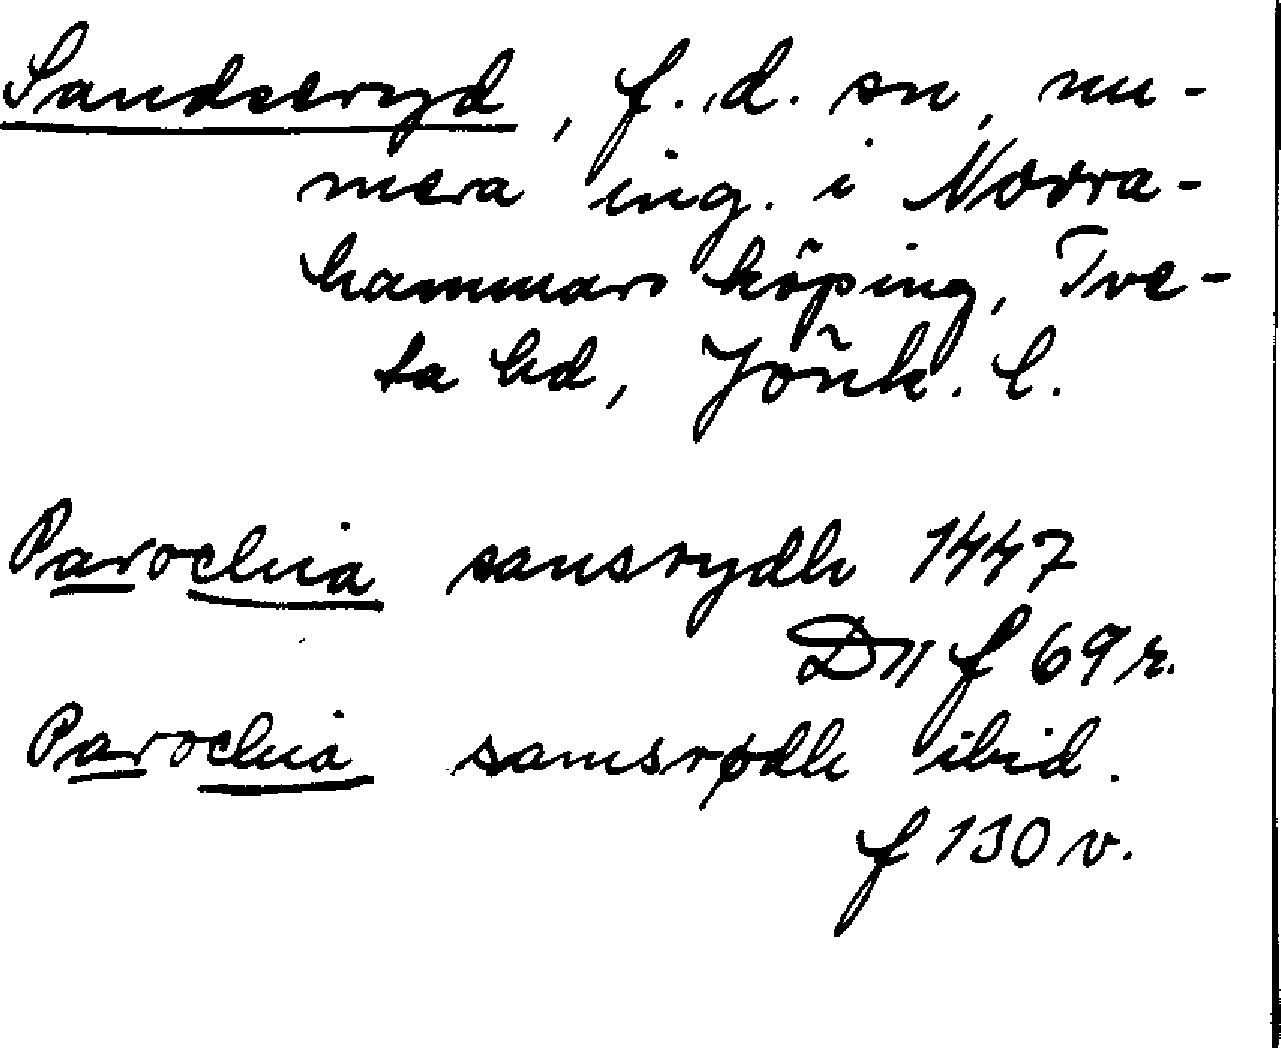 Sandseryd, f. d. sn, nu-
mera ing. i Norra-
hammars köping, Tve-
ta hd, Jönk. l.
Parochia sansrydh 1447
D11 f 69 r.
Parochia samsrødh ibid.
f 130 v.